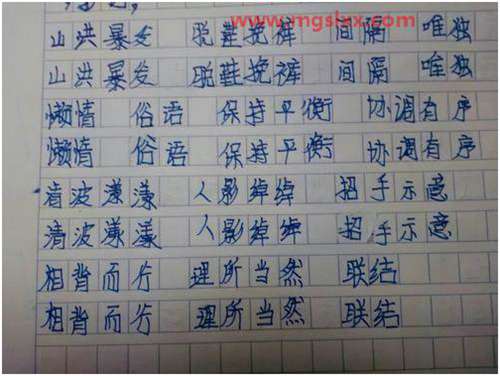 www.mgslxx.com
山洪暴发 脱鞋挽裤 间隔 唯独
山洪暴发 脱鞋挽裤 间隔 唯独
懒惰 俗语 保持平衡 协调有序
懒惰 俗语 保持平衡 协调有序
清波漾漾 人影绰绰 招手示意
清波漾漾 人影绰绰 招手示意
相背而行 理所当然 联结
相背而行 理所当然 联结